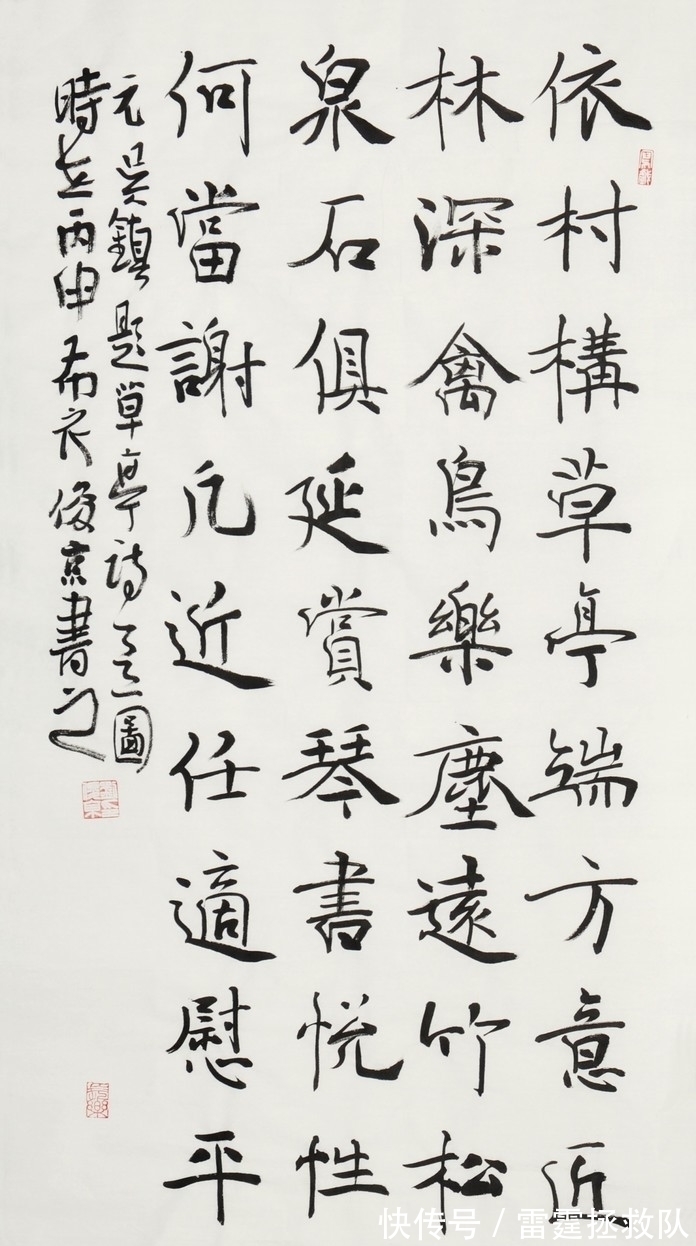 依村構草亭端方意近
林深禽鳥樂塵遠竹松
泉石俱延賞琴書悦性
何當謝凡近任適慰平
元吳鎮題草亭詩一首圖
時在丙申希衣俊京書之
快传号/雷霆拯救队